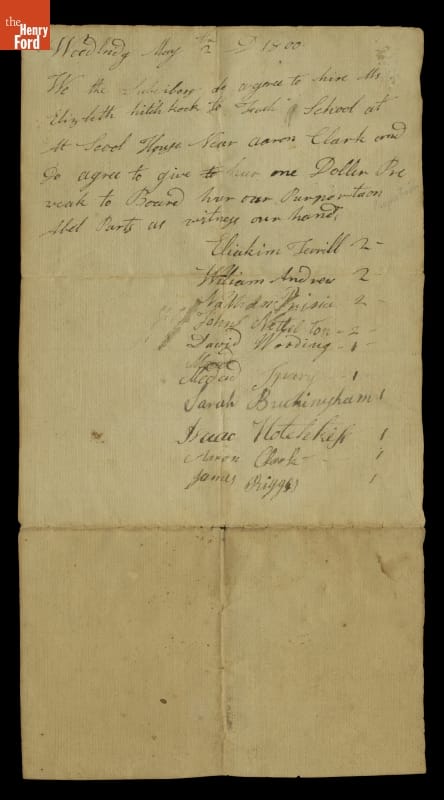 the
Henry
Ford
Woodbridg May 2 D 1800
We the Subscibers do agree to hire Ms
Elizebeth hitchkock to Teach School at
At Scool House Near aaron Clark and
Do agree to give to her one Doller Pre
weak to Board hur our Purportaon
Abel Parts as witness our hands
Eliakim Terrill 2-
William Andrew 2
Nathan 2-
John Nettelton -2-
David Wooding -1
Medad Sperry -1
Sarah Buckingham 1
Isaac Hotchkiss 1
Aaron Clark - 1
James Riggs 1